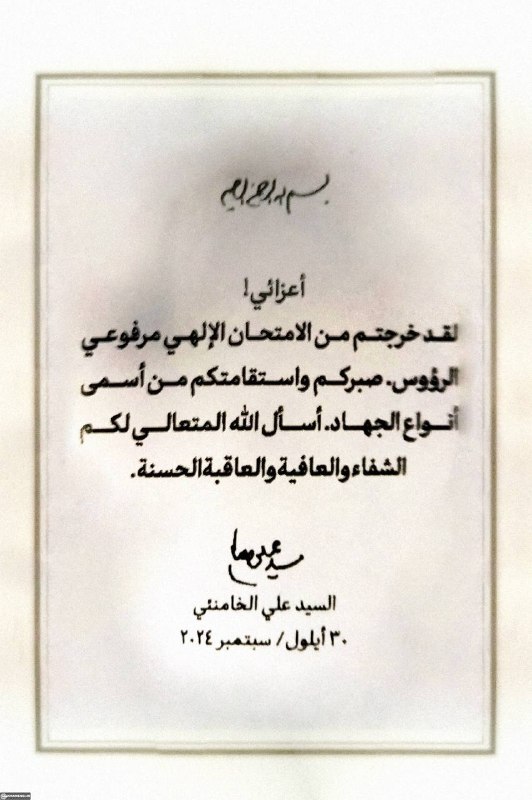 بسم الله الرحمن الرحیم
أعزائي!
لقد خرجتم من الامتحان الإلهي مرفوعي
الرؤوس. صبركم واستقامتكم من أسمى
أنواع الجهاد. أسأل الله المتعالي لكم
الشفاء والعافية والعاقبة الحسنة.
السيد علي الخامنئي
٣٠ أيلول/ سبتمبر ٢٠٢٤